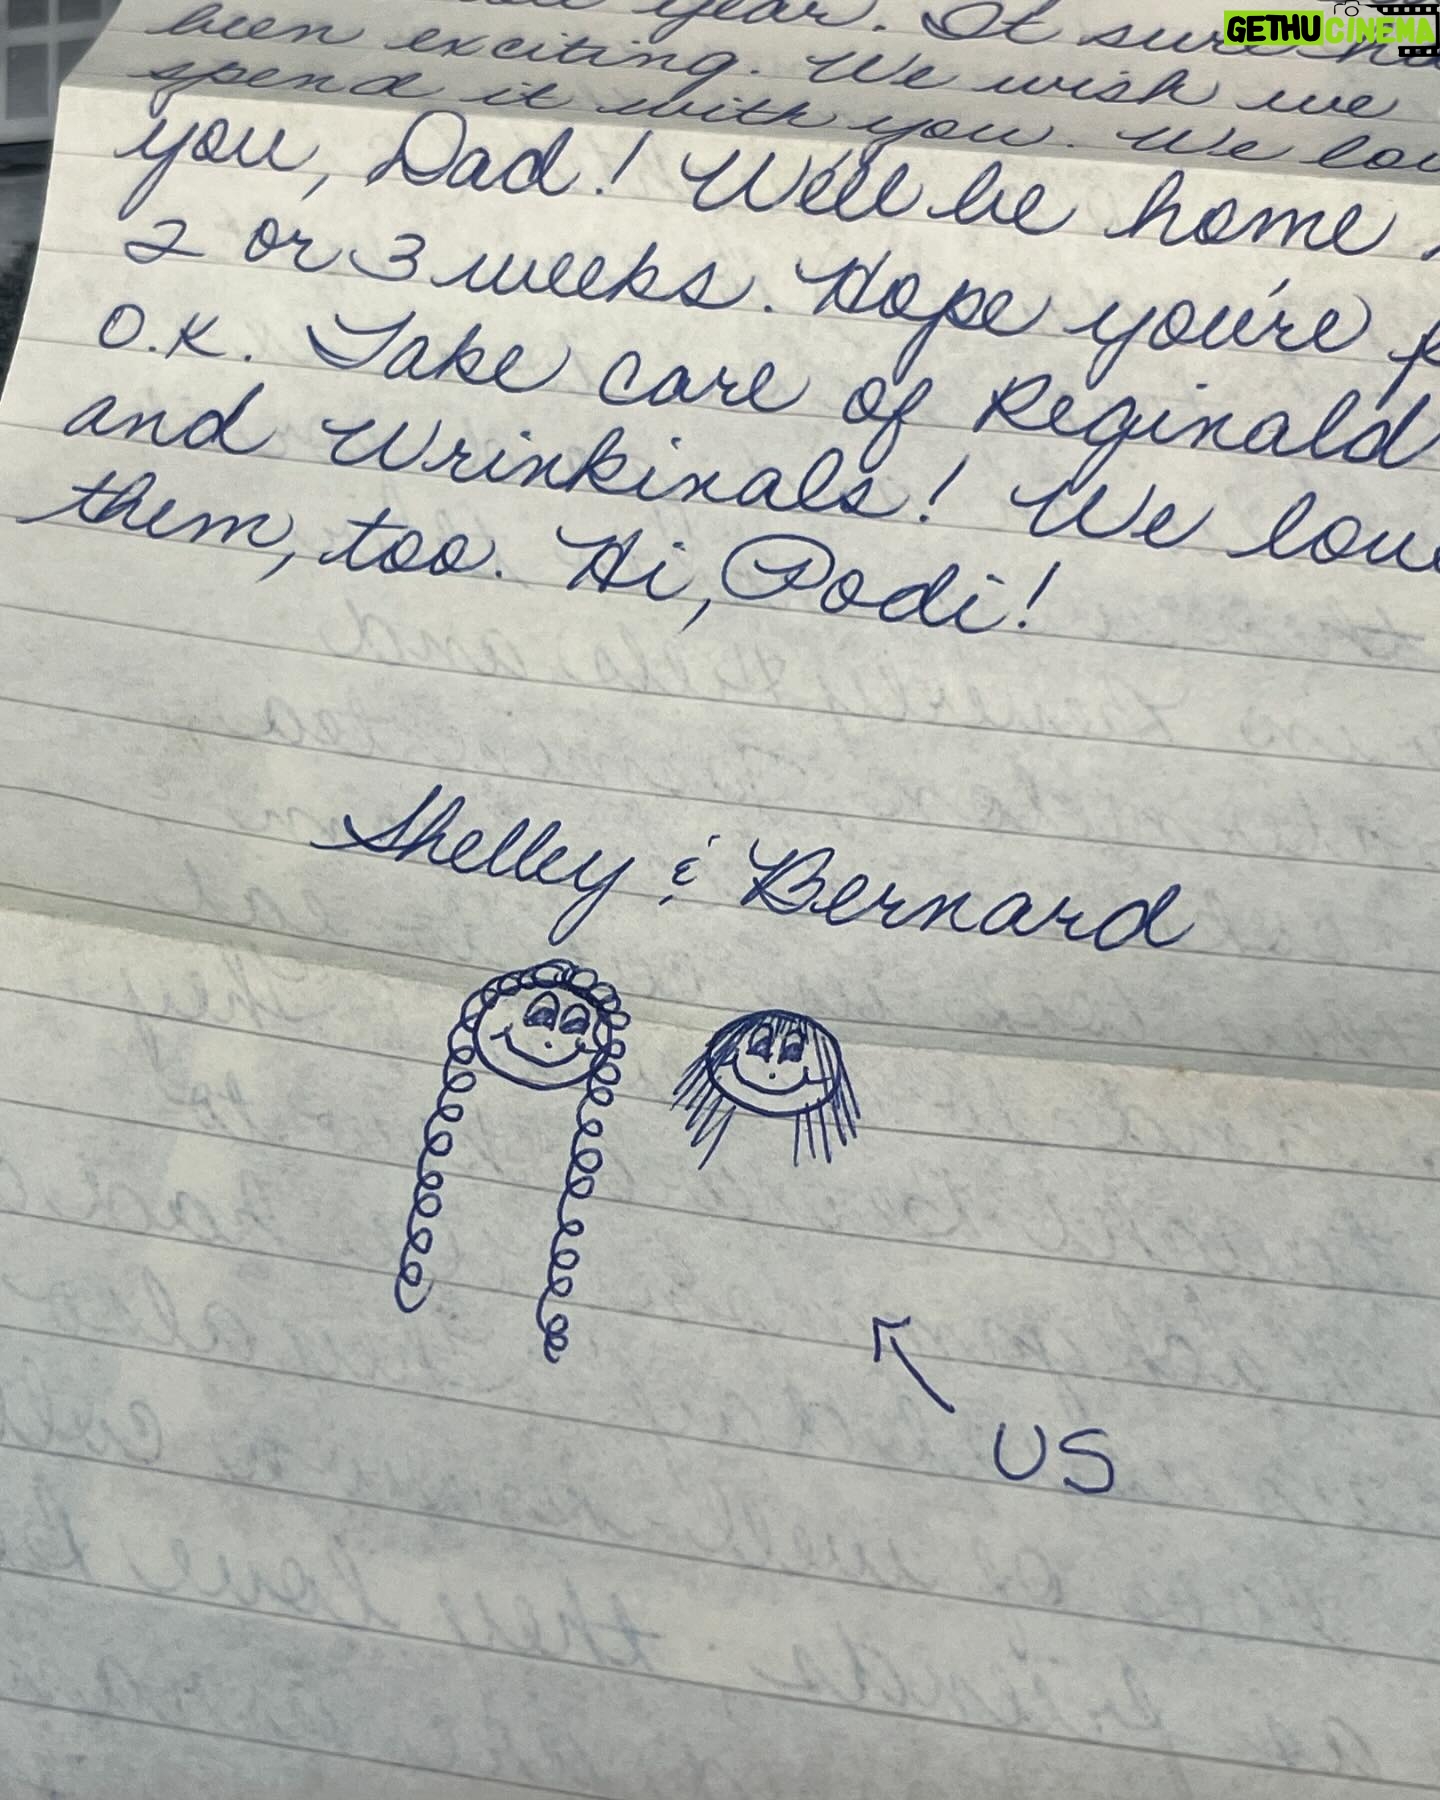 GETHUCINEMA
year. It sure
been exciting. We wish we
spend it with you. We
you, Dad! We'll be home
2 or 3 weeks. Hope you're
O.K. Take care of Reginald
and Wrinkinals! We love
them, too. Hi, Podi!
Shelley & Bernard
US